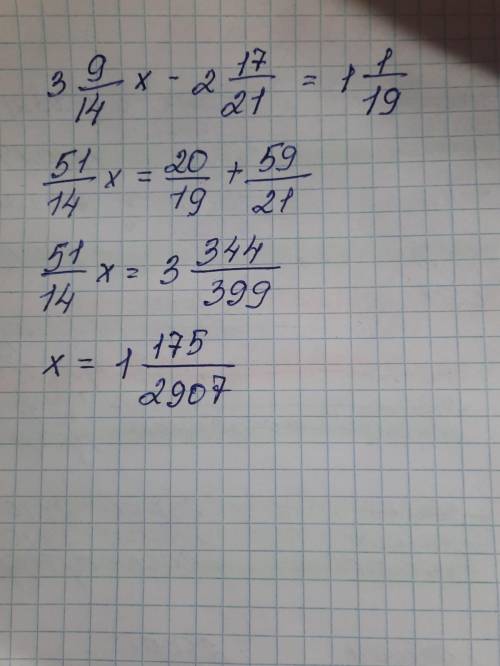 3 9/14 x - 2 17/21 = 1 1/19
51/14 x = 20/19 + 59/21
51/14 x = 3 344/399
x = 1 175/2907